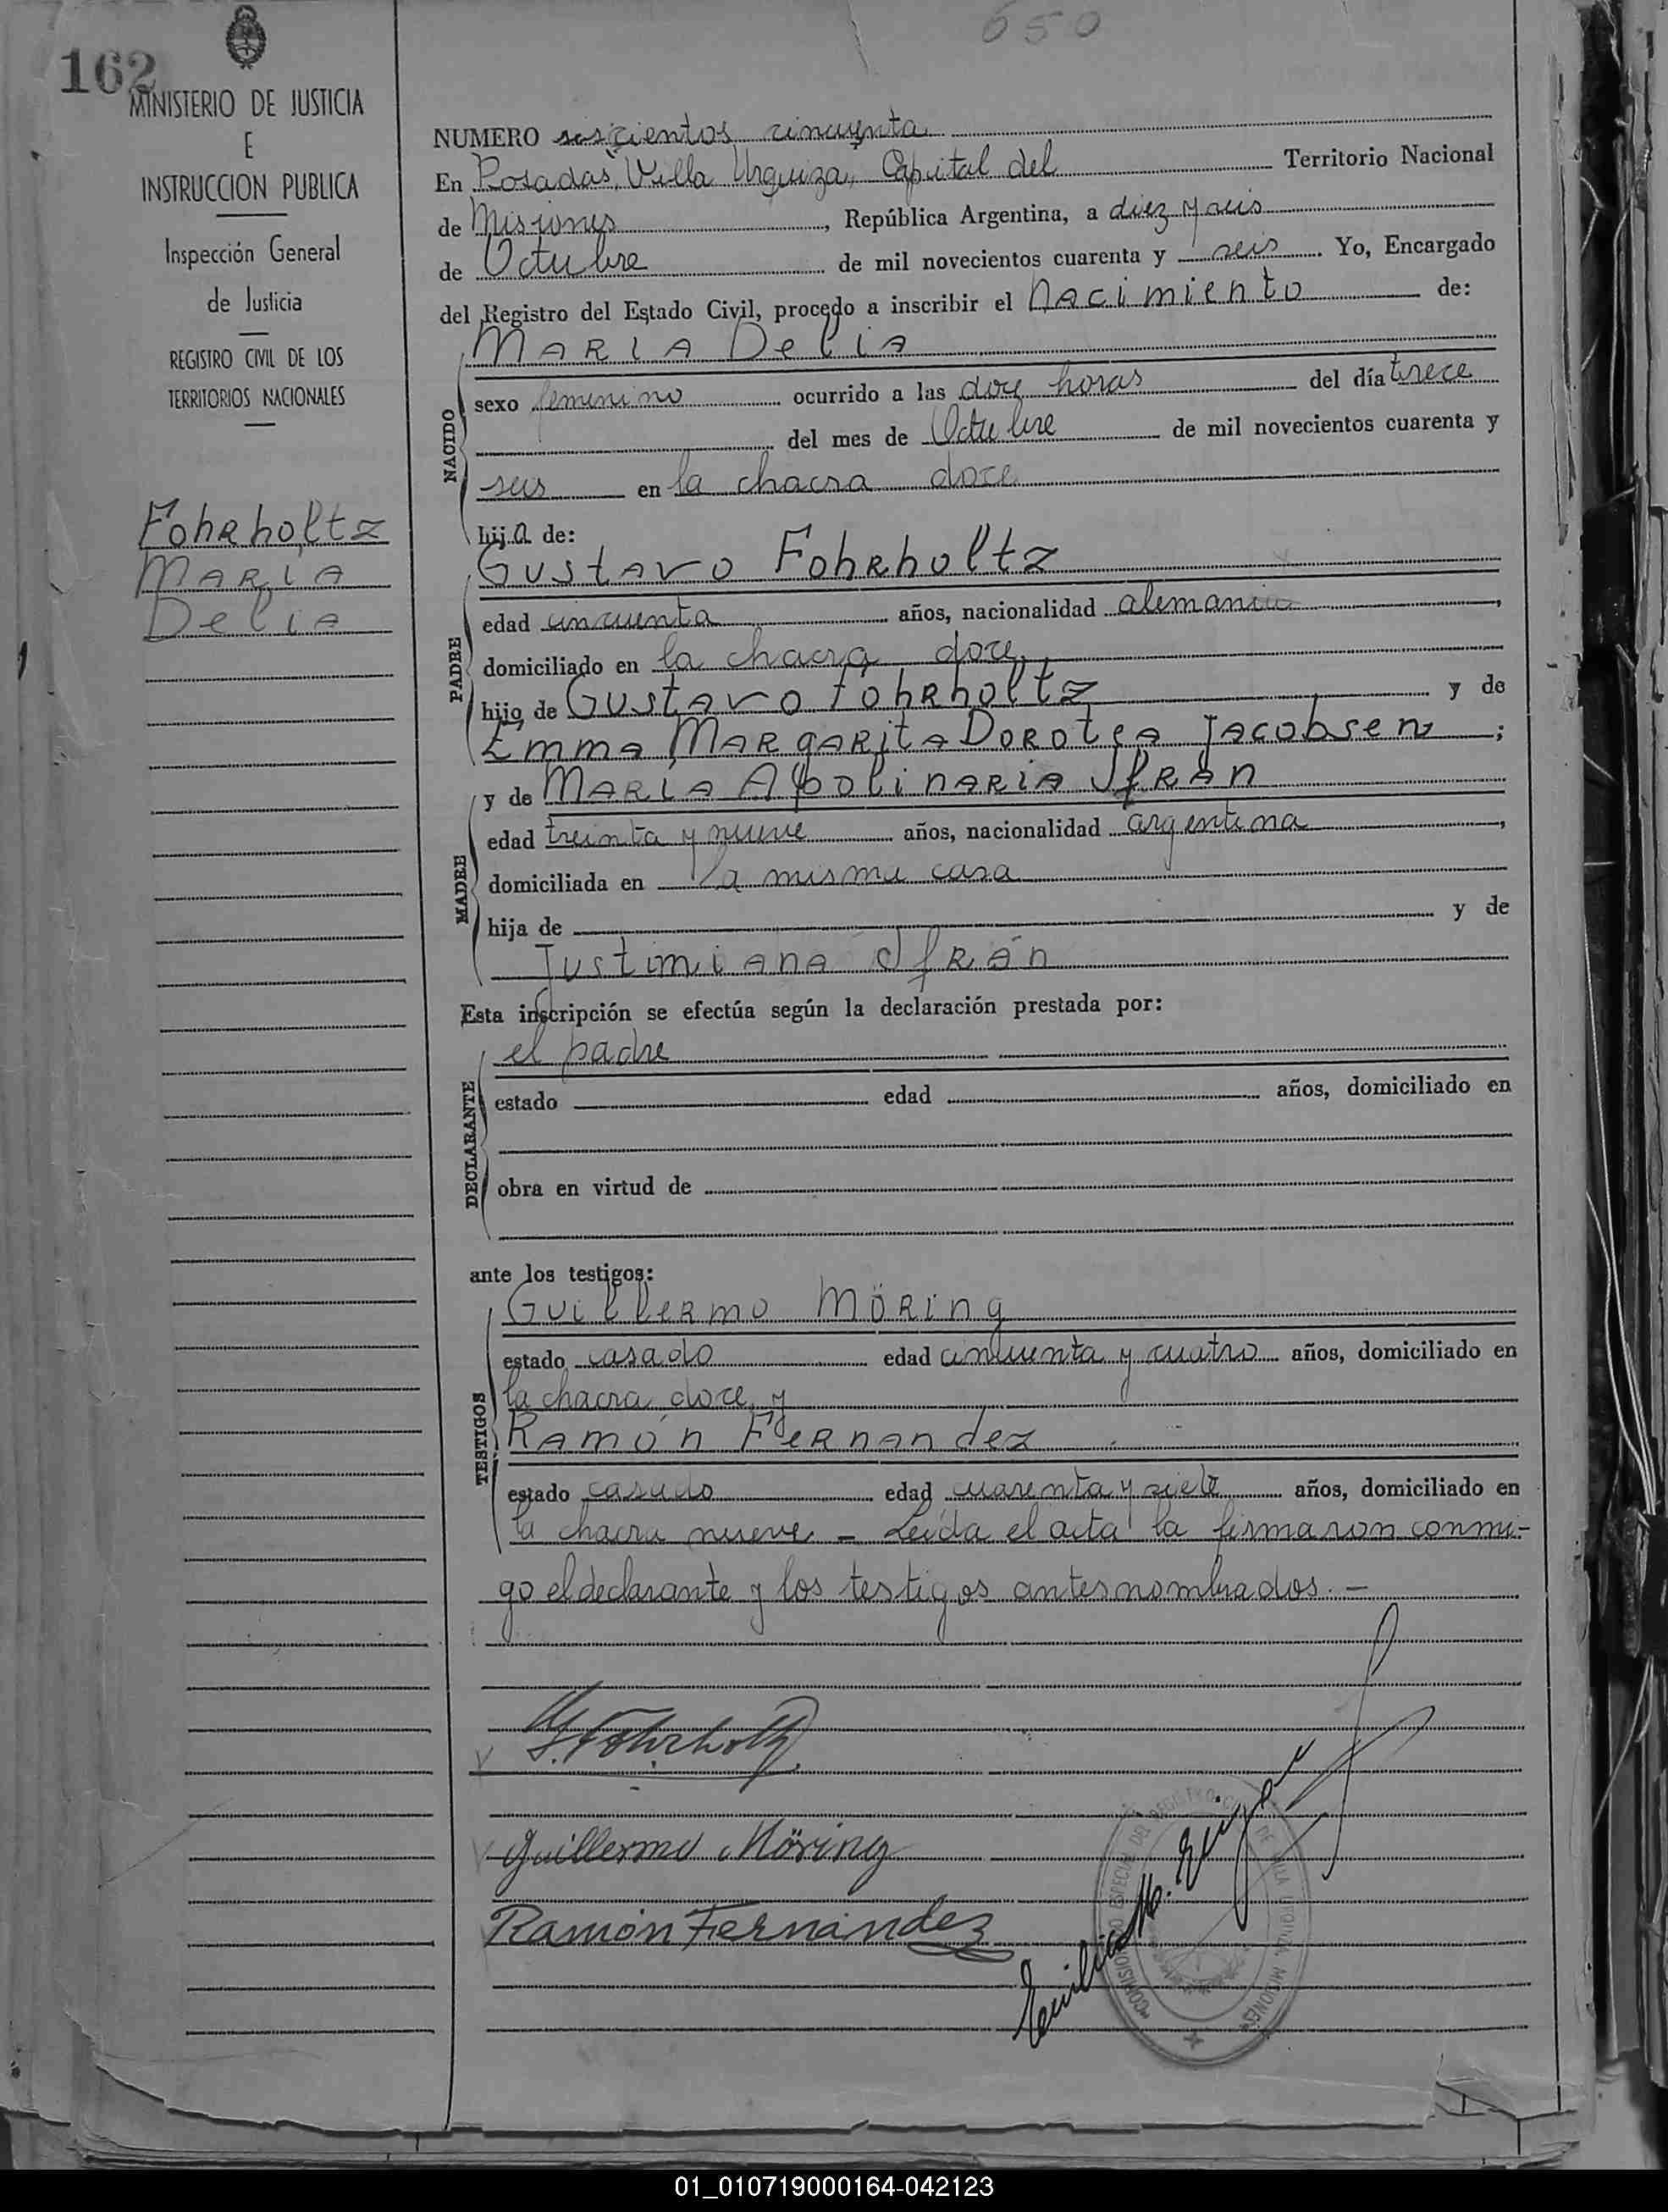 650
162
MINISTERIO DE JUSTICIA
E
INSTRUCCION PUBLICA
Inspección General
de Justicia
REGISTRO CIVIL DE LOS
TERRITORIOS NACIONALES
Fohrholtz
MARIA
Delia
NUMERO seiscientos cincuenta
En Posadas, Villa Urquiza, Capital del Territorio Nacional
de Misiones, República Argentina, a diez y seis
de Octubre de mil novecientos cuarenta y seis. Yo, Encargado
del Registro del Estado Civil, procedo a inscribir el Nacimiento de:
MARIA Delia
NACIDO
sexo femenino ocurrido a las doce horas del día trece
del mes de Octubre de mil novecientos cuarenta y
seis en la chacra doce
hija de:
Gustavo Fohrholtz
PADRE
edad cincuenta años, nacionalidad alemana,
domiciliado en la chacra doce,
hijo de Gustavo Fohrholtz y de
Emma Margarita Dorotea Jacobsen;
y de Maria Apolinaria Ifrán
MADRE
edad treinta y nueve años, nacionalidad argentina,
domiciliada en la misma casa
hija de y de
Justimiana Ifrán
Esta inscripción se efectúa según la declaración prestada por:
el padre
DECLARANTE
estado edad años, domiciliado en
obra en virtud de
ante los testigos:
Guillermo Möring
TESTIGOS
estado casado edad cincuenta y cuatro años, domiciliado en
la chacra doce, y
Ramón Fernandez
estado casado edad cuarenta y siete años, domiciliado en
la chacra nueve. - Leída el acta la firmaron conmi-
go el declarante y los testigos antes nombrados. -
G. Fohrholtz
Guillermo Möring
Ramón Fernández
01_010719000164-042123